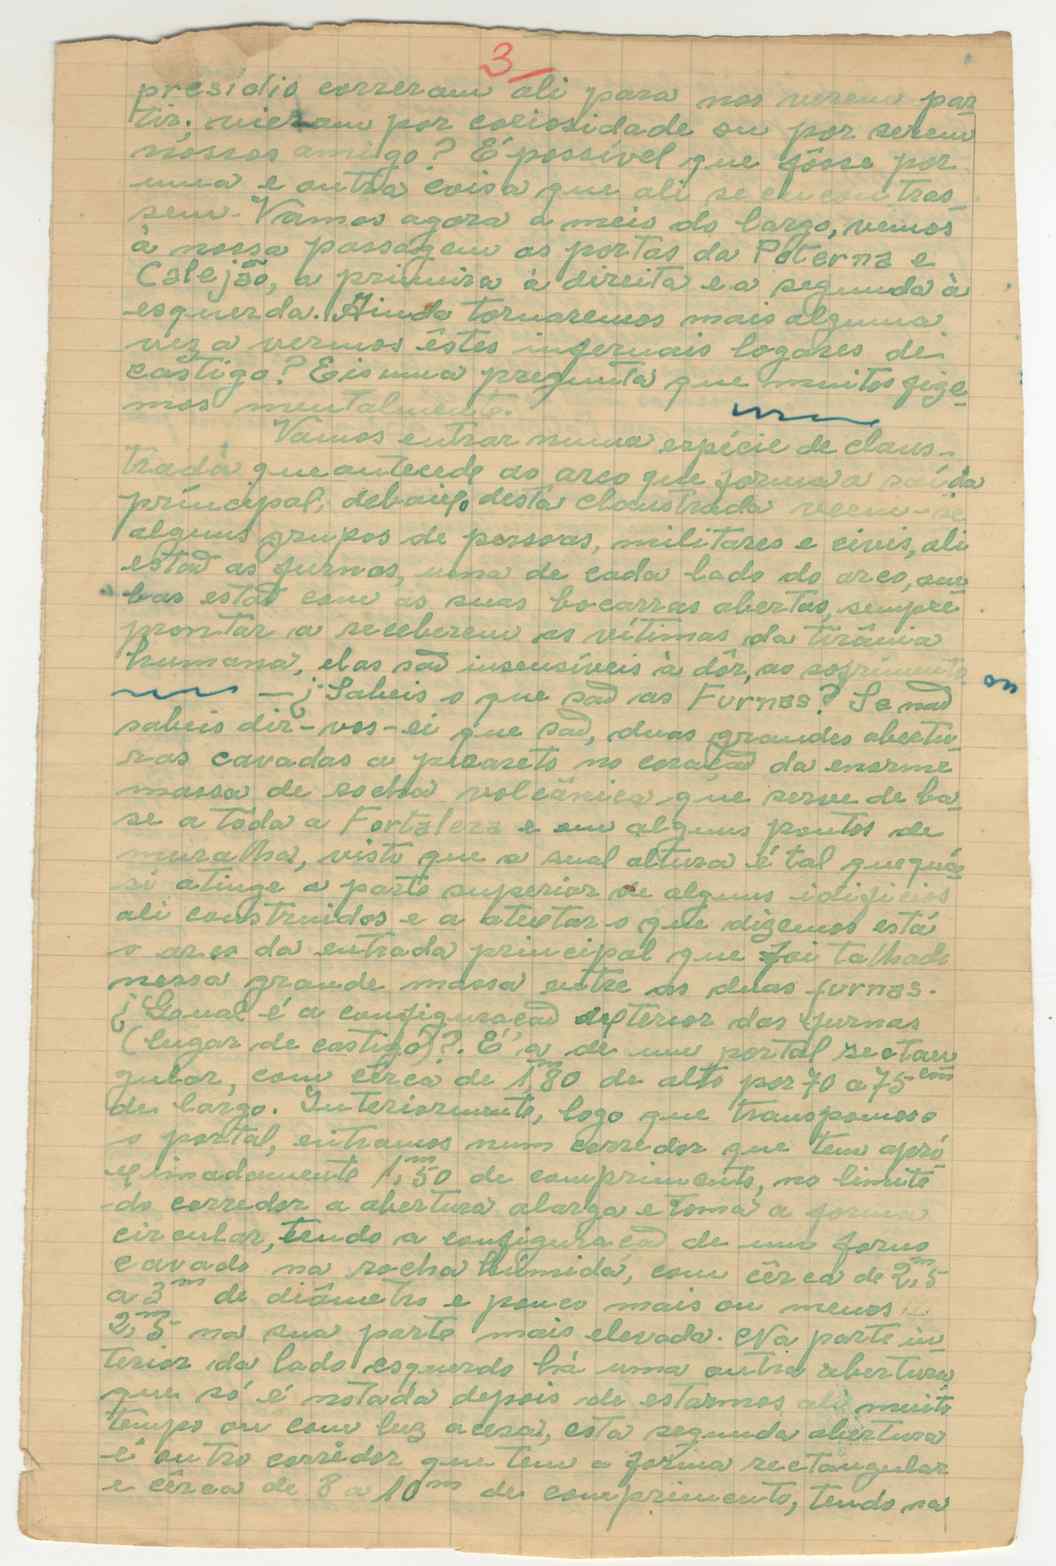 3
presídio correram ali para nos verem par
tir; vieram por coriosidade ou por serem
nossos amigo? É possível que fôsse por
uma e outra coisa que ali se encontras
sem. Vamos agora a meio do largo, vemos
à nossa passagem as portas da Poterna e
Calejão, a primeira à direita e a segunda à
esquerda. Ainda tornaremos mais alguma
vez a vermos êstes infernais logares de
castigo? Eis uma pregunta que muitos fize
mos mentalmente.
Vamos entrar numa espécie de claus-
trada que antecede ao arco que forma a saída
principal, debaixo desta claustrada veem-se
alguns grupos de pessoas, militares e civis, ali
estão as furnas, uma de cada lado do arco, am
bas estão com as suas bocarras abertas, sempre
prontas a receberem as vítimas da tirânia
humana, elas são insensíveis à dôr, ao sofrimento
—¿Sabeis o que são as Furnas? Se não
sabeis dir-vos-ei que são, duas grandes abertu
ras cavadas a picareto no coração da enorme
massa de rocha volcânica que serve de ba
se a tôda a Fortaleza e em alguns pontos de
muralha, visto que a sual altura é tal que quá
si atinge a parte superior de alguns idificios
ali construidos e a atestar o que dizemos está
o arco da entrada principal que foi talhado
nessa grande massa entre as duas furnas.
¿Qual é a configuração exterior das furnas
(lugar de castigo)?. É a de um portal rectan
gular, com cêrca de 1,m80 de alto por 70 a 75cm
de largo. Interiormente, logo que transpomos o
o portal, entramos num corredor que tem apró
ximadamente 1,m50 de comprimento, no limite
do corredor a abertura alarga e toma a forma
circular, tendo a configuração de um forno
cavado na rocha húmida, com cêrca de 2,m5
a 3m de diâmetro e pouco mais ou menos
2,m5 na sua parte mais elevada. Na parte in
terior do lado esquerdo há uma outra abertura
que só é notada depois de estarmos ali muito
tempo ou com luz acesa, esta segunda abertura
é outro corrêdor que tem a fórma rectangular
e cêrca de 8 a 10m de comprimento, tendo na